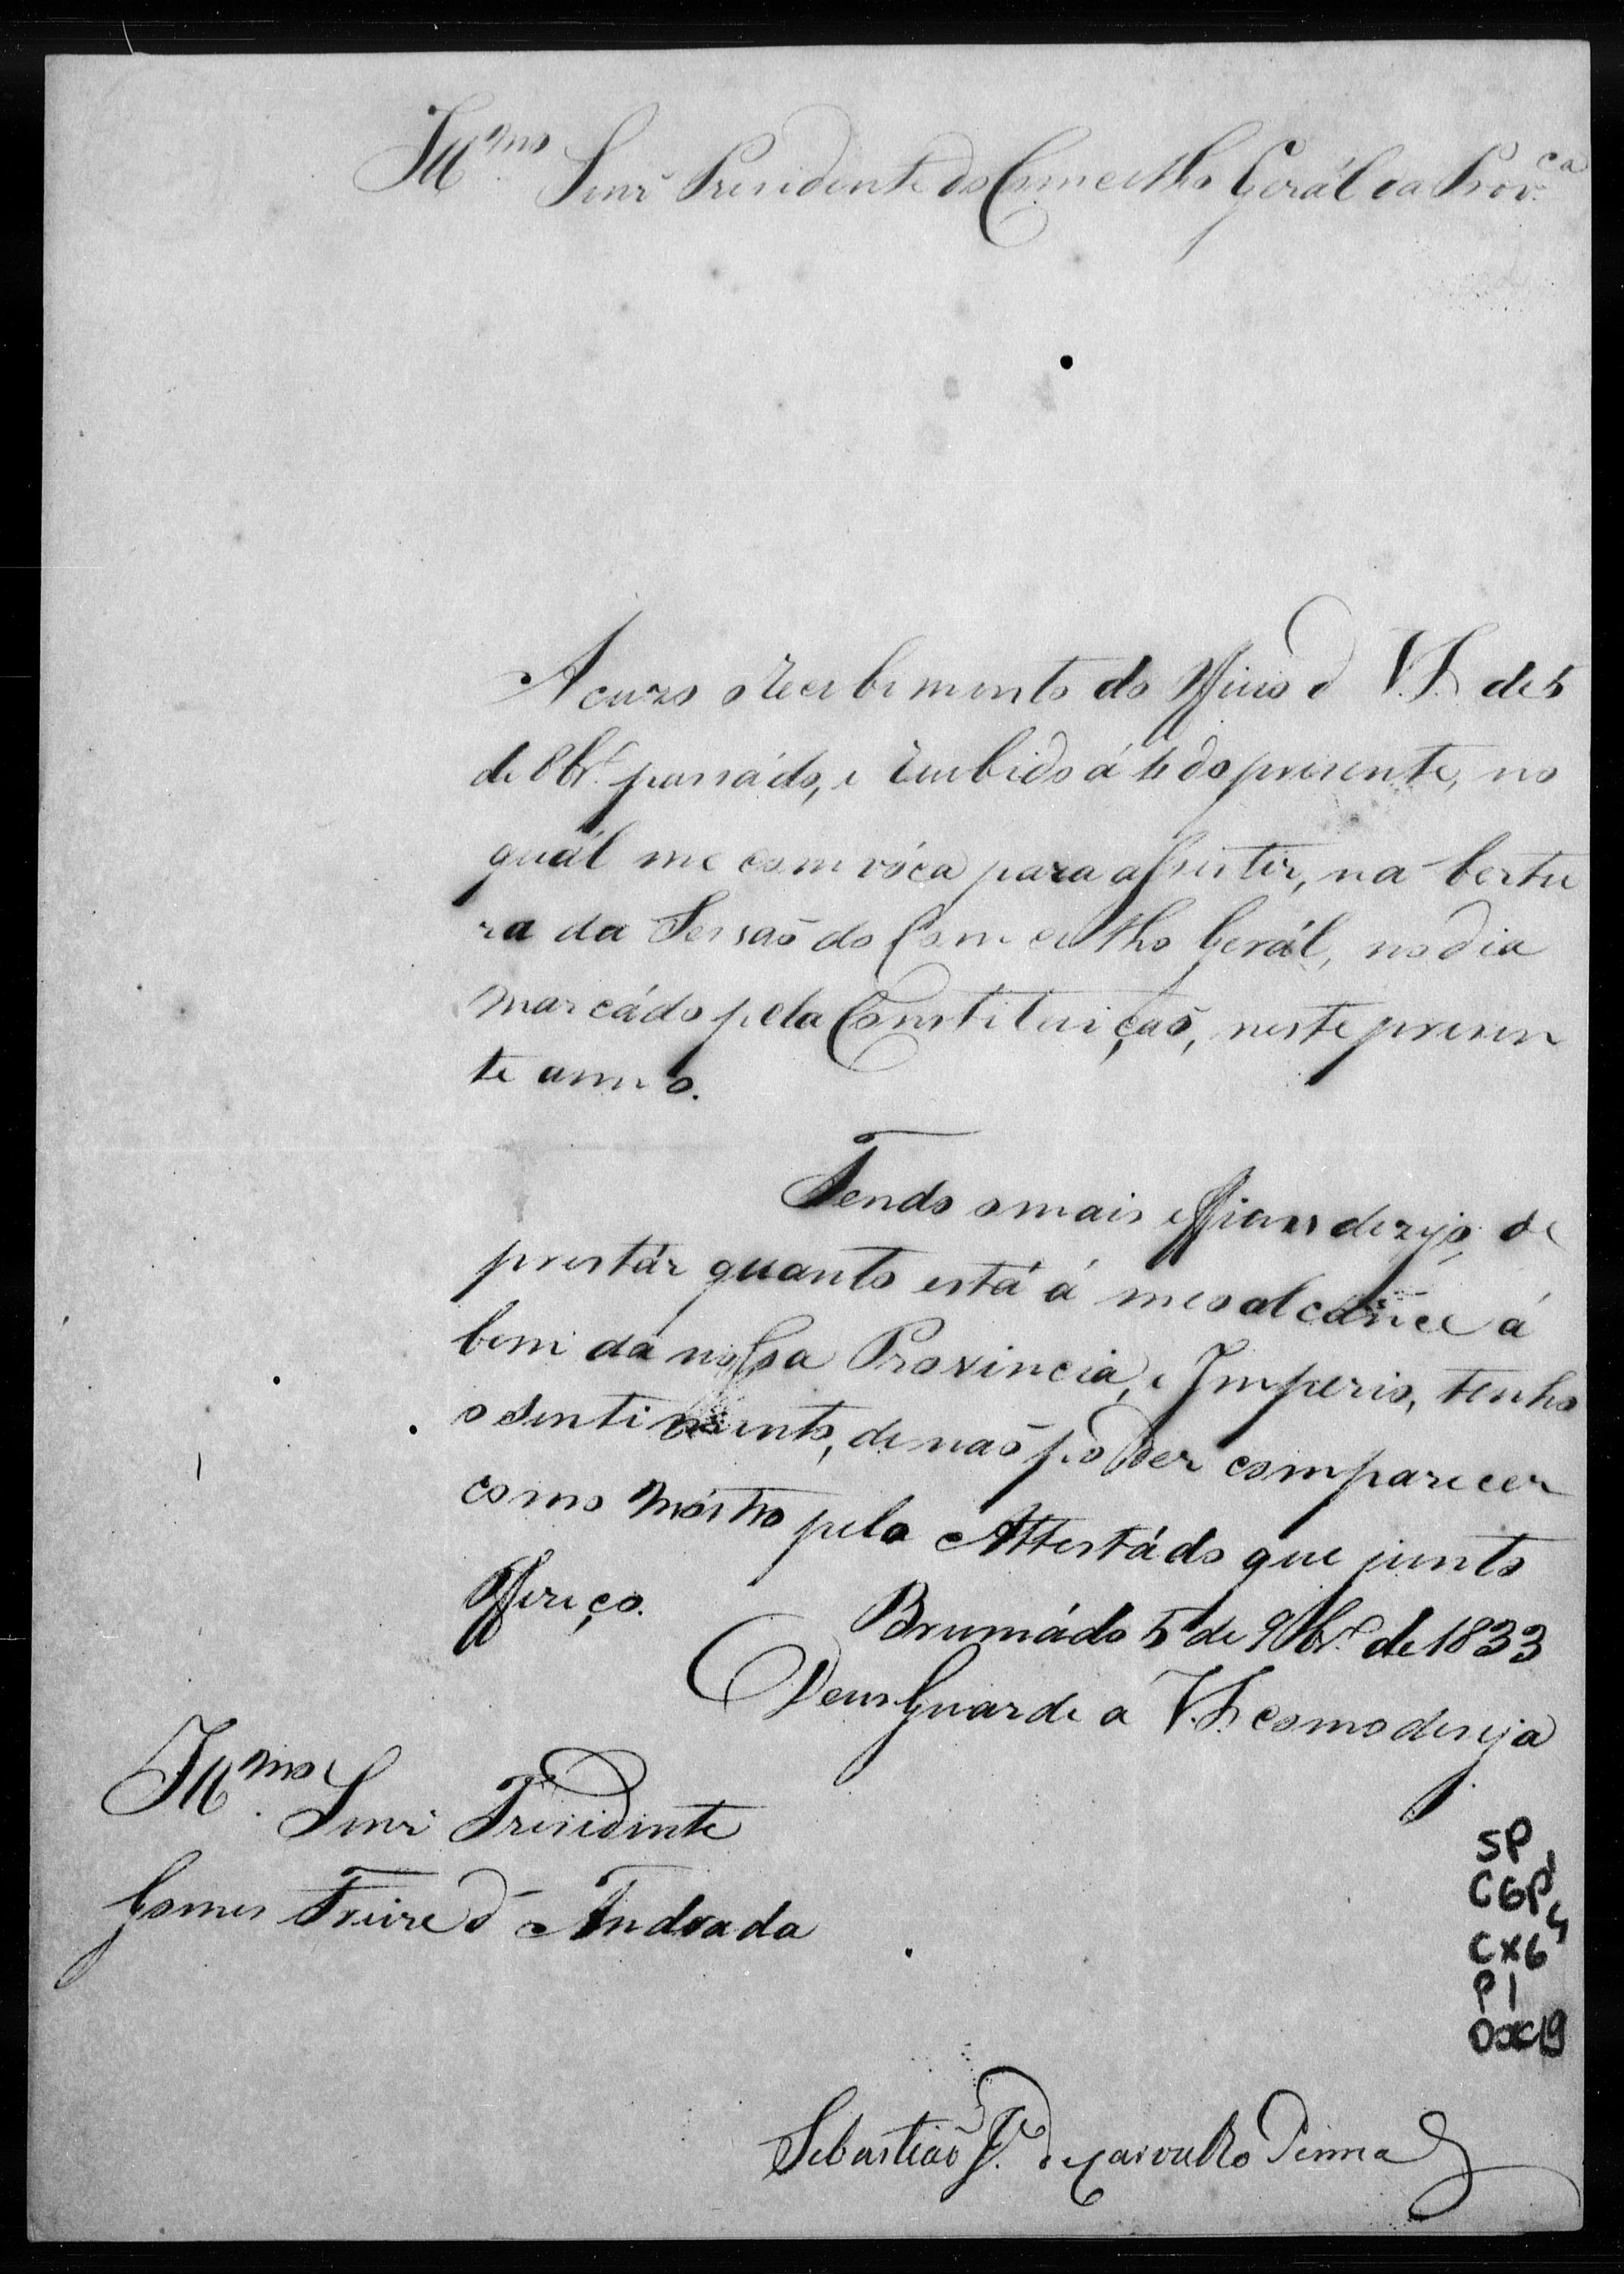 Ill.mo Senr Presidente do Comcelho Gerál da Prov.ca
Acuzo o recebimento do Officio d' V.S. de 5
de 8br.o passádo, e recebido á 4 do presente, no
quál me comvóca para assistir, na bertu
ra da Sessaõ do Comcelho Gerál, no dia
marcádo pela Constituiçaõ, neste presen
te anno.
Tendo o mais efficas dezejo de
prestár quanto está á meo alcance á
bem da nossa Provincia, e Imperio, tenho
o sentimento, de naõ poder comparecer
como móstro pelo Attestádo que junto
offereço.
Brumádo 5 de 9br.o de 1833
Deus Guarde a V.S. como deseja
Ill.mo Senr Presidente
Gomes Freire d' Andrada
SP
CGP1
CX6
P1
Doc19
Sebastiaõ J.e de Carvalho Penna